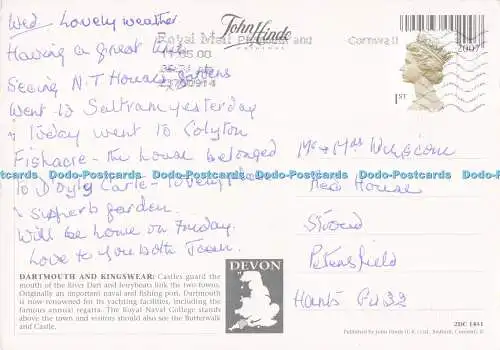 Wed Lovely weather
Having a great time
Seeing N.T Houses & gardens
Went to Saltram yesterday
Today went to Colyton
Fishacre - the house belonged
To D'oyly Carte - lovely
superb garden.
Will be home on Friday.
Love to you both Jean.
John Hinde
ORIGINAL
Royal Mail Plymouth and Cornwall
11.05.00
1ST
Mr & Mrs
New House
Stroud
Petersfield
Hants GU32
DARTMOUTH AND KINGSWEAR: Castles guard the
mouth of the River Dart and ferryboats link the two towns.
Originally an important naval and fishing port, Dartmouth
is now renowned for its yachting facilities, including the
famous annual regatta. The Royal Naval College stands
above the town and visitors should also see the Butterwalk
and Castle.
DEVON
2DC 1461
Published by John Hinde (U.K.) Ltd., Redruth, Cornwall, ©
Dodo-Postcards Dodo-Postcards Dodo-Postcards Dodo-Postcards Dodo-Postcards Dodo-Postcards